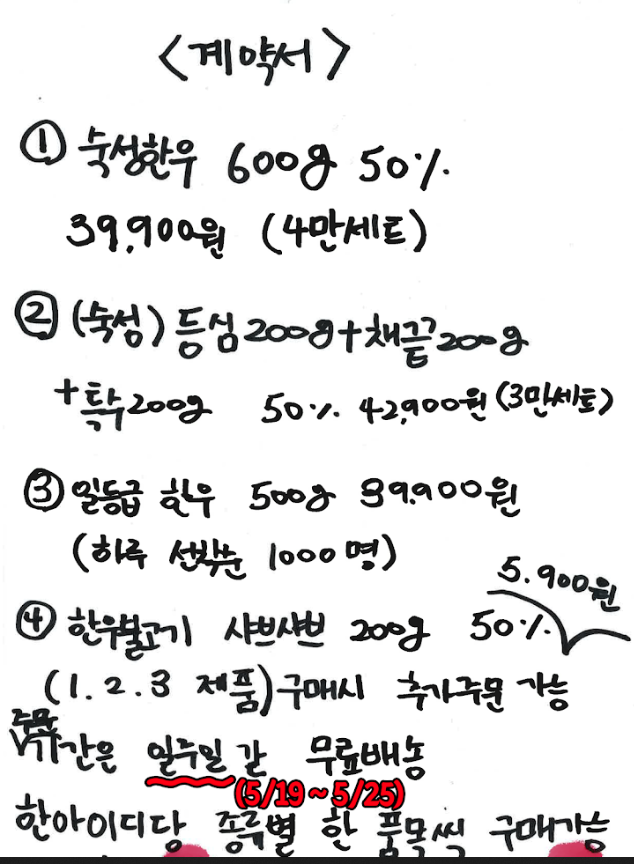 <계약서>
① 숙성한우 600g 50%
39,900원 (4만세트)
② (숙성) 등심 200g+채끝 200g
+특수 200g 50% 42,900원 (3만세트)
③ 일등급 한우 500g 39,900원
(하루 선착순 1000명)
5.900원
④ 한우불고기 샤브샤브 200g 50%
(1. 2. 3 제품) 구매시 추가주문 가능
주문
기간은 일주일 간 무료배송
(5/19 ~ 5/25)
한아이디당 종류별 한 품목씩 구매가능